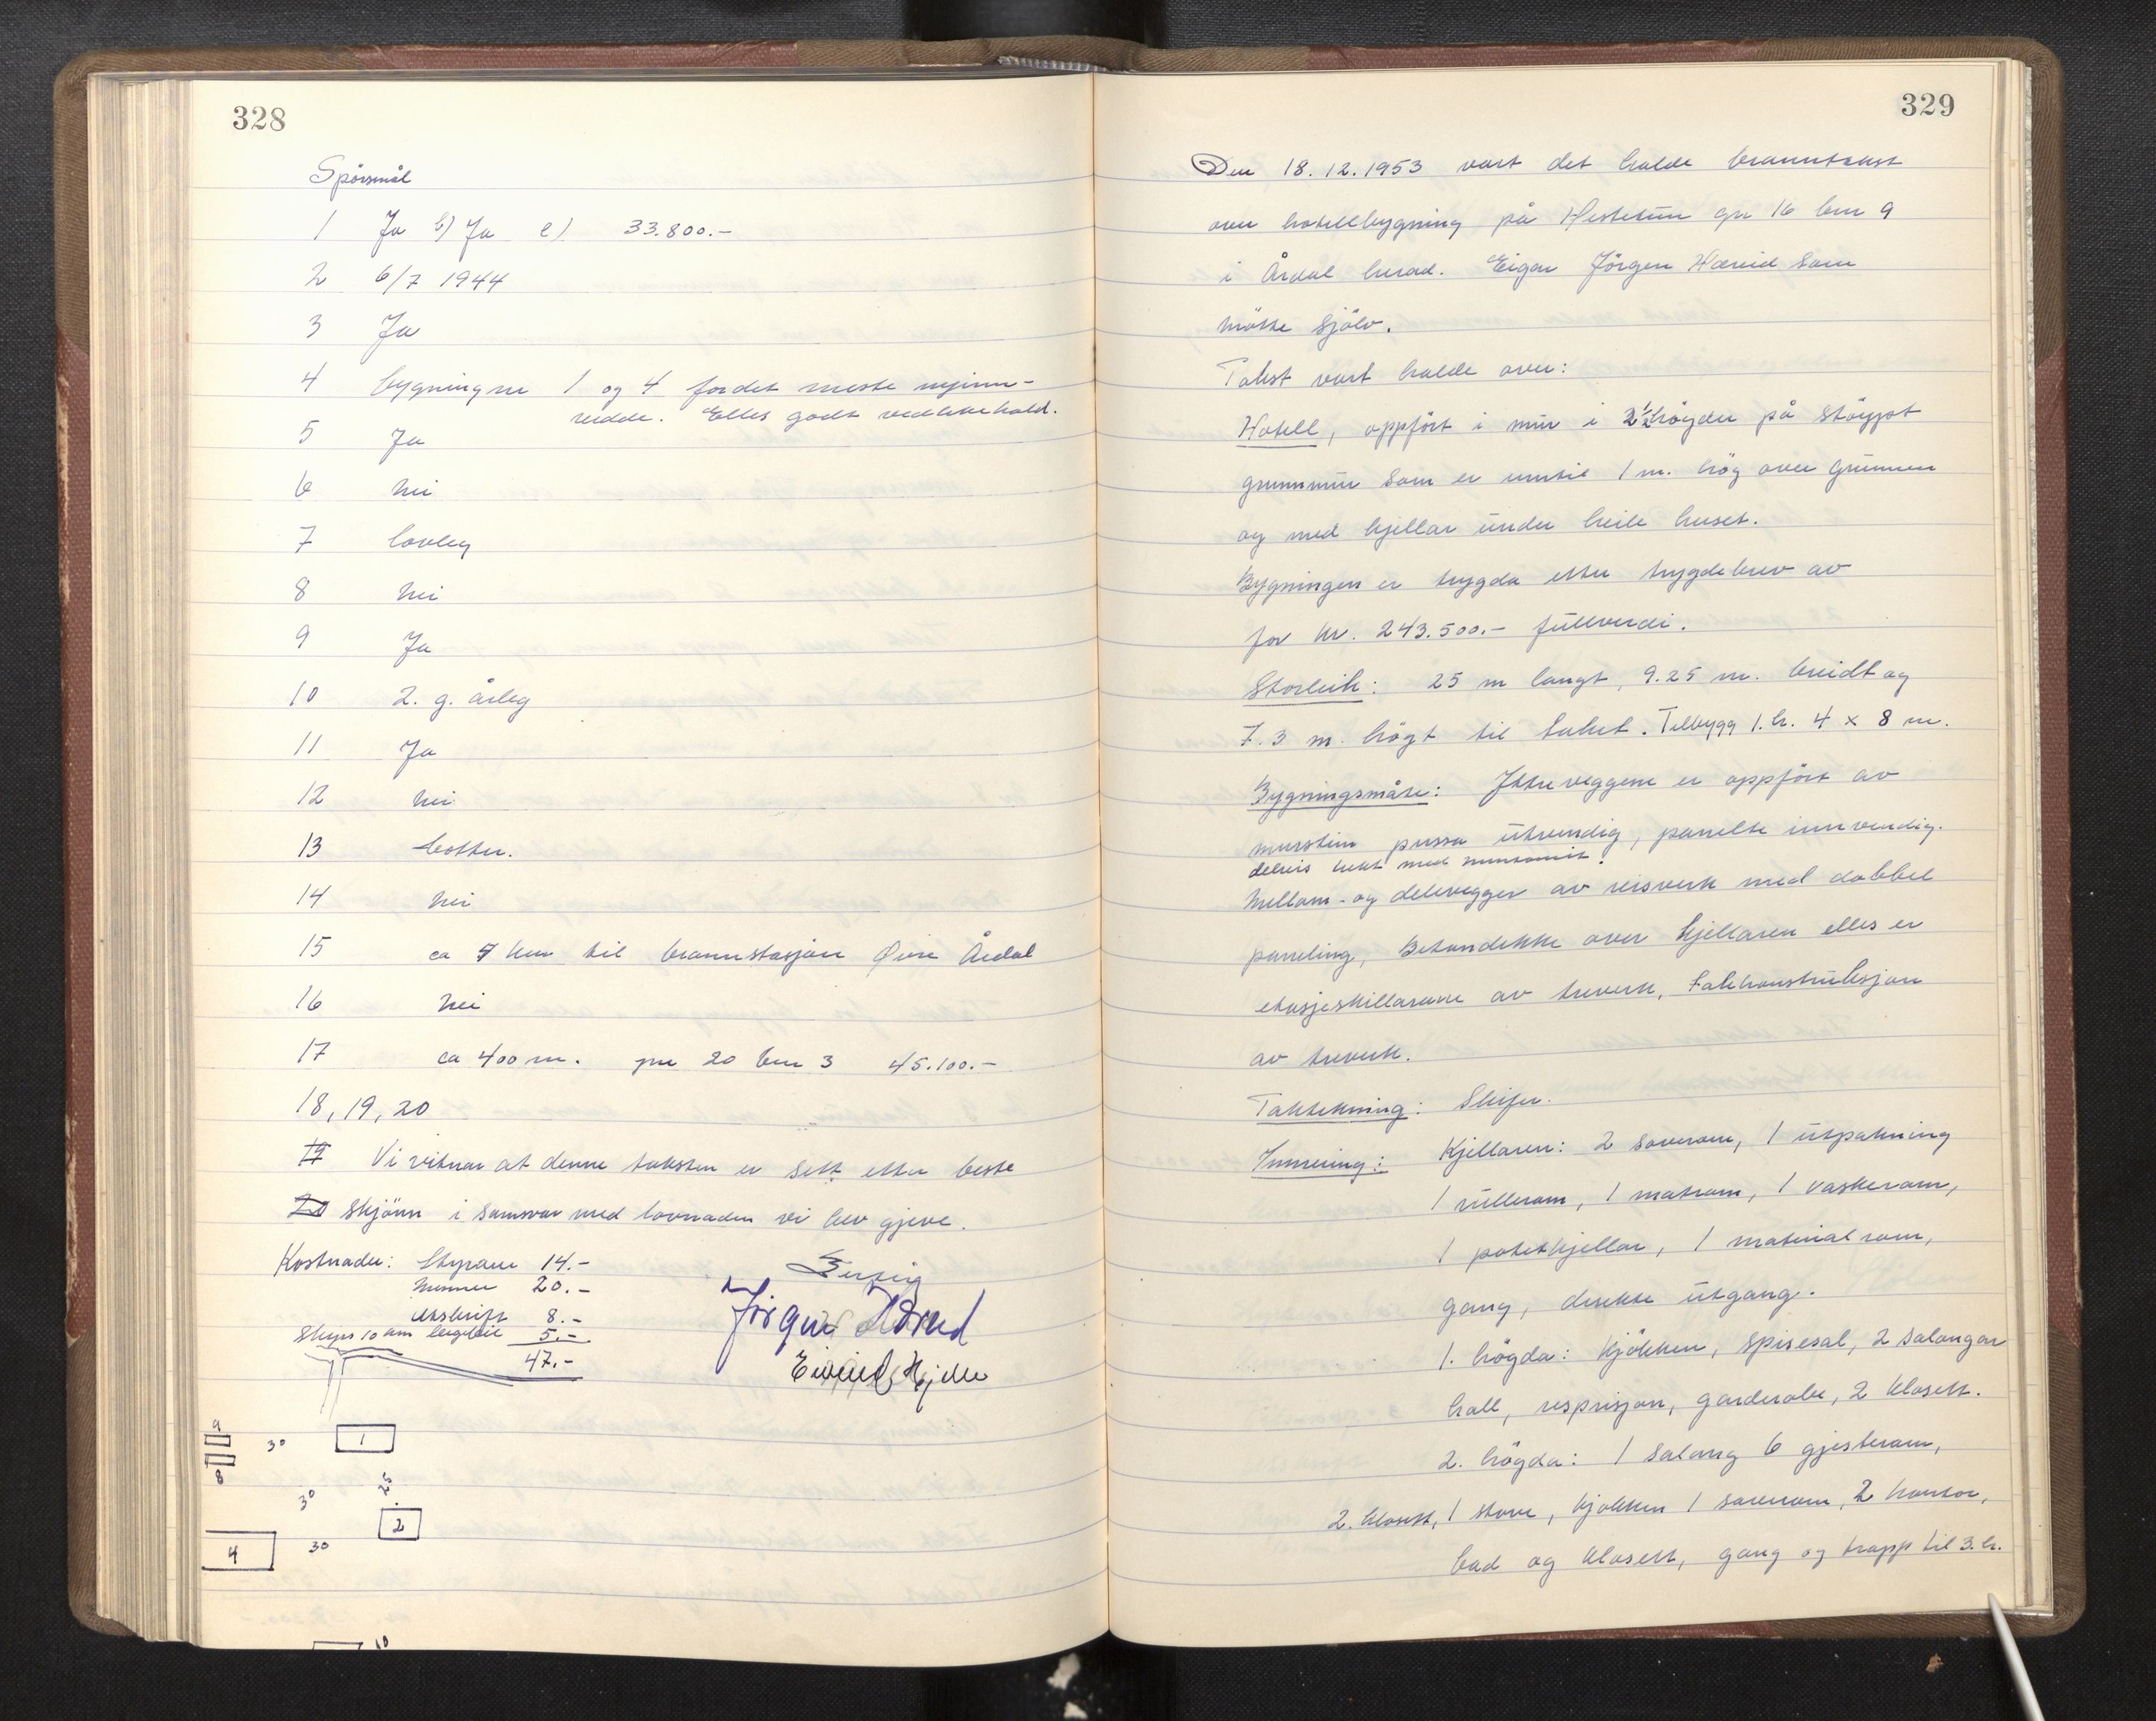 328
Spörsmål
1 Ja b) Ja c) 33.800.-
2 6/7 1944
3 Ja
4 bygningne 1 og 4 fordet meste nyinn-
reidde. Elles godt vedlikehold.
5 Ja
6 nei
7 lovleg
8 nei
9 Ja
10 2. g. årleg
11 Ja
12 nei
13 botter.
14 nei
15 ca 7 km til brannstasjon Øvre Årdal
16 nei
17 ca 400 m. gnr 20 bnr 3 45.100.-
18, 19, 20
19 Vi vitnar at denne taksten er sett etter beste
20 skjönn i samsvar med lovnaden vi hev gjeve.
Kostnader: Styrar 14.-
Menner 20.-
Utskrift 8.-
Skyss 10 km 5.-
47.-
Eivind Hjelle
9
30
1
8
30
25
2
4
30
10
329
Den 18.12.1953 vart det halde branntakst
over hotellbygning på Hestetun gnr 16 bnr 9
i Årdal herad. Eigar Jörgen Hæreid som
mötte sjölv.
Takst vart halde over:
Hotell, oppfört i mur i 2 1/2 högder på stöypt
grunnmur som er inntil 1 m. hög over grunnen
og med kjellar under heile huset.
Bygningen er trygda etter trygdebrev av
for kr. 243.500.- fullverdi.
Storleik: 25 m langt, 9.25 m. breidt og
7.3 m. högt til taket. Tilbygg 1. h. 4 x 8 m.
Bygningsmåte: Ytterveggene er oppfört av
murstein pussa utvendig, panelte innvendig.
delvis med
Mellom- og deleveggen av reisverk med dobbel
paneling, Betondekke over kjellaren elles er
etasjeskillarane av treverk, takkonstruksjon
av treverk.
Taktekning: Skifer.
Innreiing: Kjellaren: 2 soverom, 1 utpakning
1 rullerom, 1 matrom, 1 vaskerom,
1 potetkjellar, 1 material rom,
gang, direkte utgang.
1. högda: Kjökken, spisesal, 2 salongar
hall, respsisjon, garderobe, 2 klosett.
2. högda: 1 salong 6 gjesterom,
2. klosett, 1 stove, kjökken 1 soverom, 2 kontor,
bad og klosett, gang og trapp til 3. h.